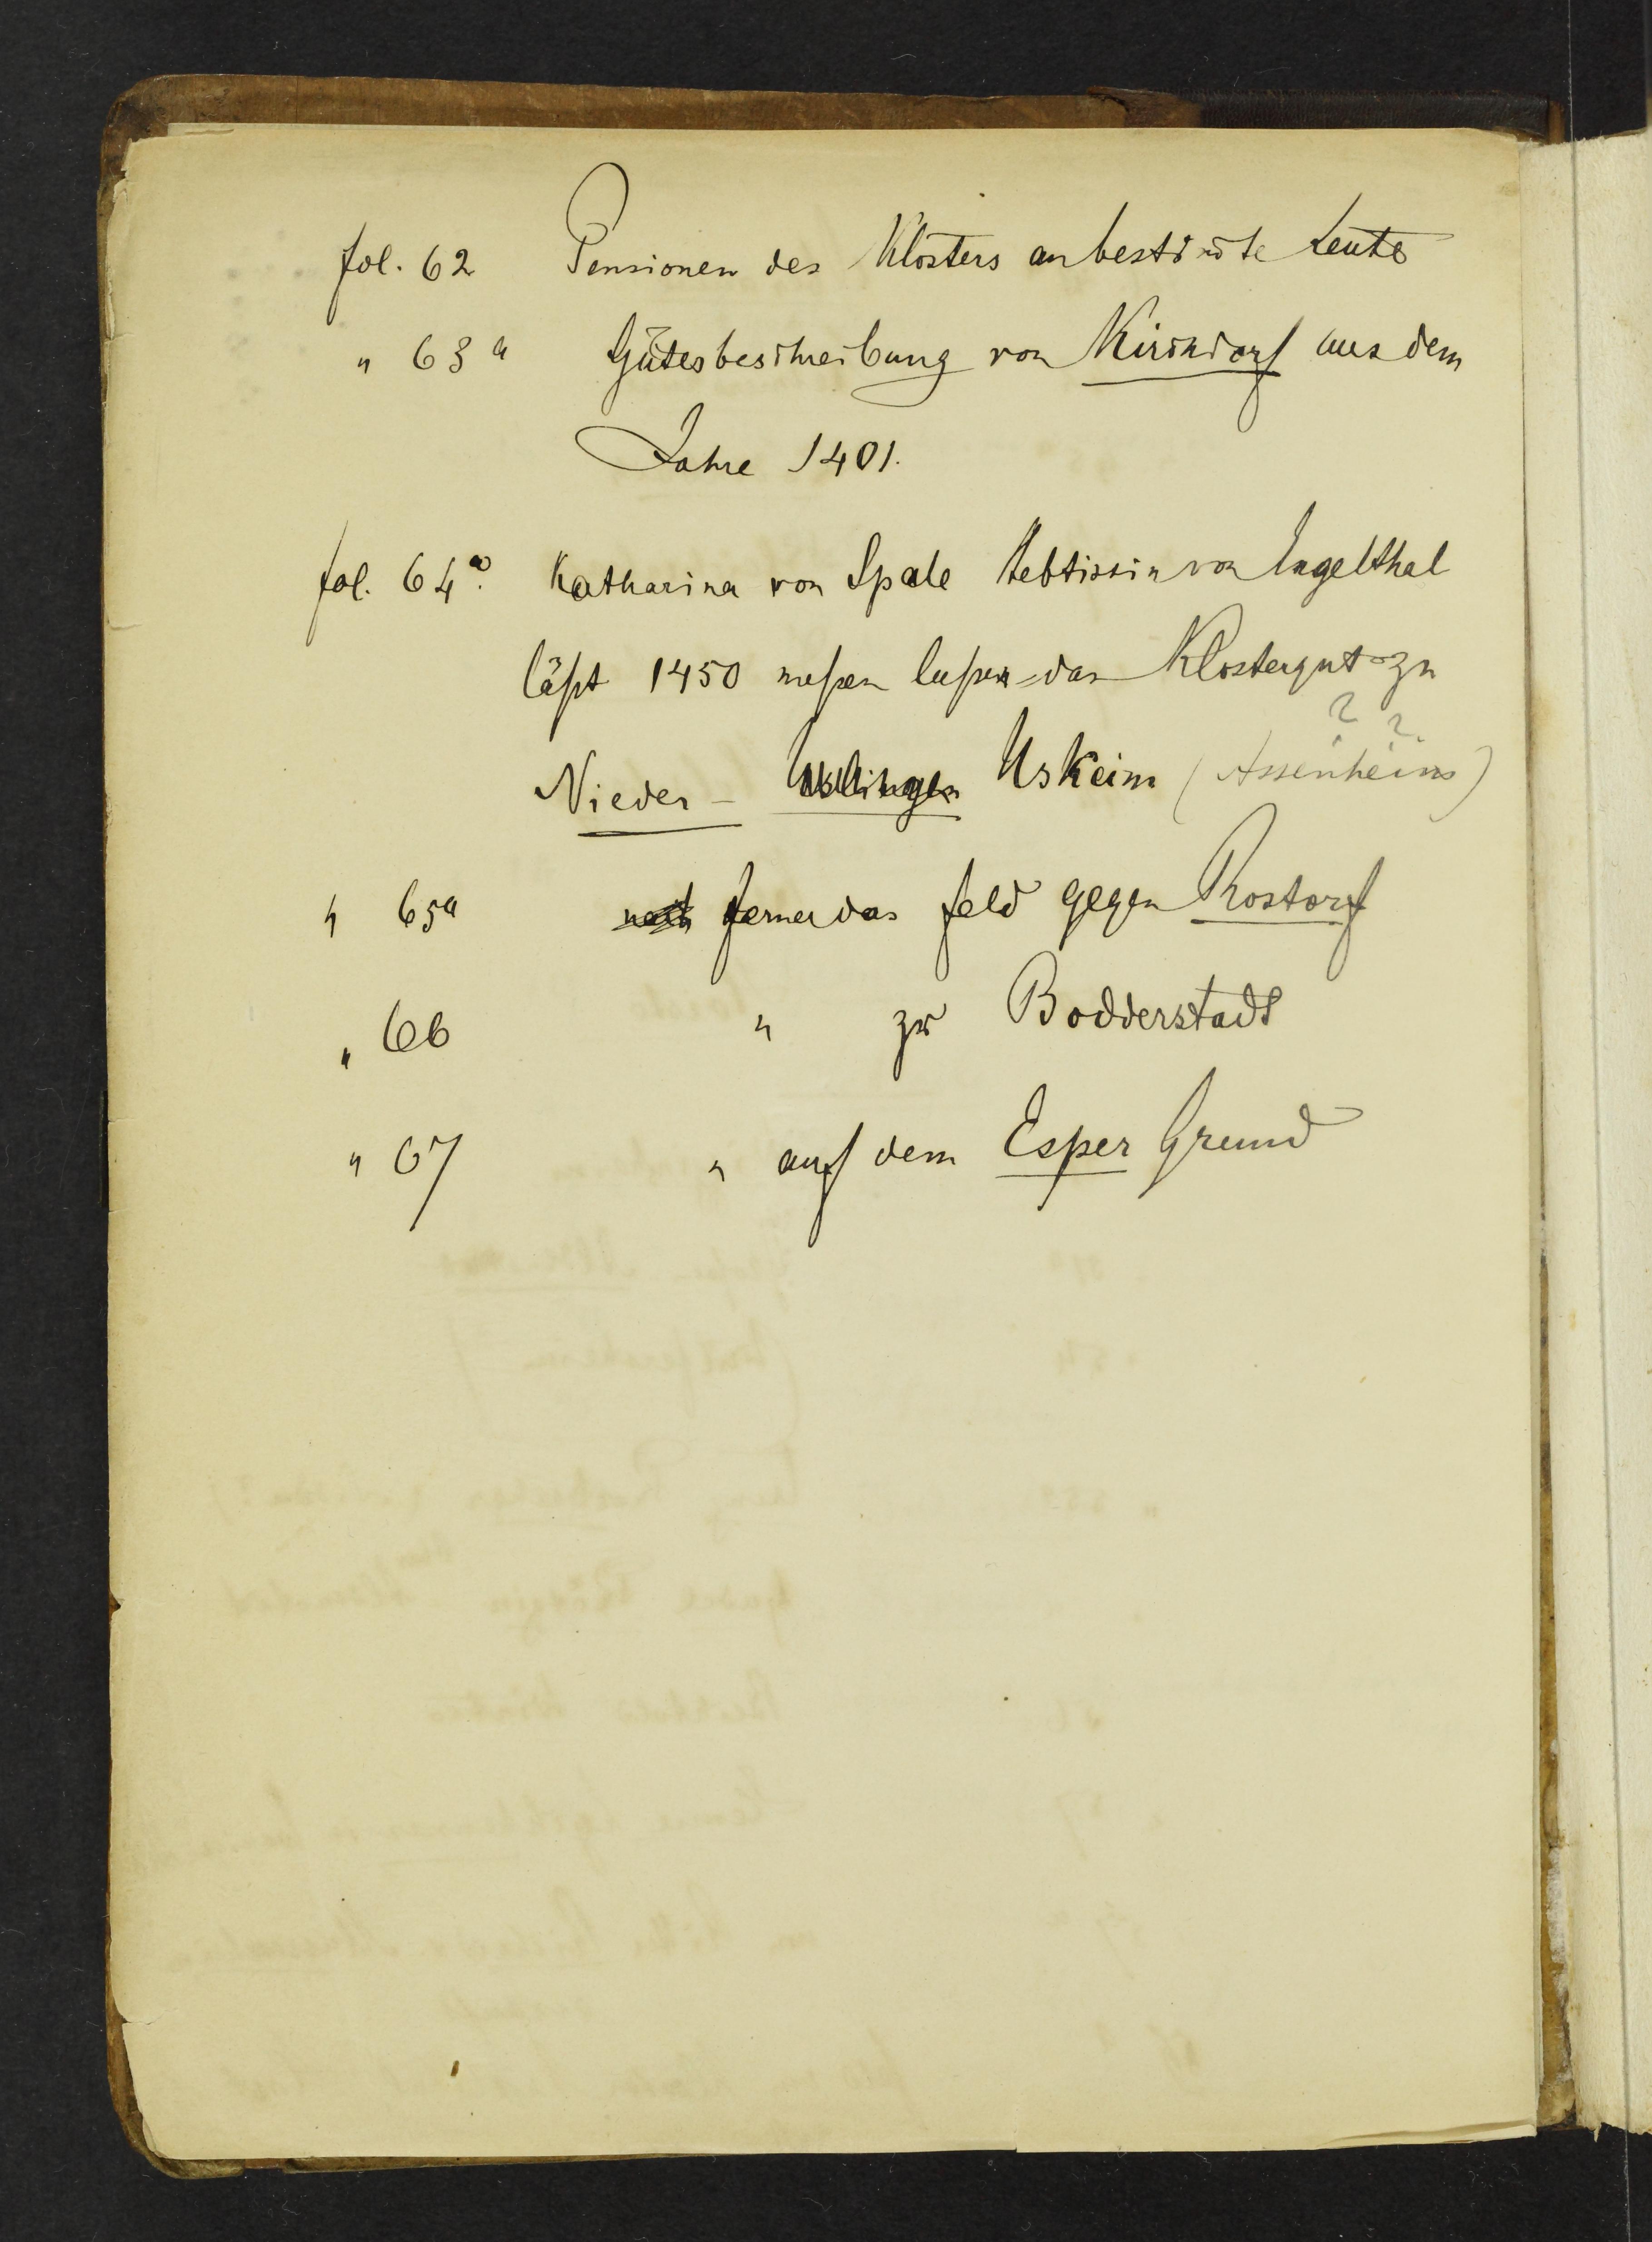 fol. 62 Pensionen des Klosters an bestim̅te Leute
" 63a Güterbeschreibung von Kirchdorf aus dem
Jahre 1401.
fol. 64a. Katharina von Spale Aebtissin von Engelthal
läßt 1450 meßen laßen das Klostergut zu
? ?
Nieder- Uskeim (Assenheim)
" 65a noch ferner das Feld gegen Rostorf
" 66 " zu Bodderstadt
" 67 " auf dem Esper Grund